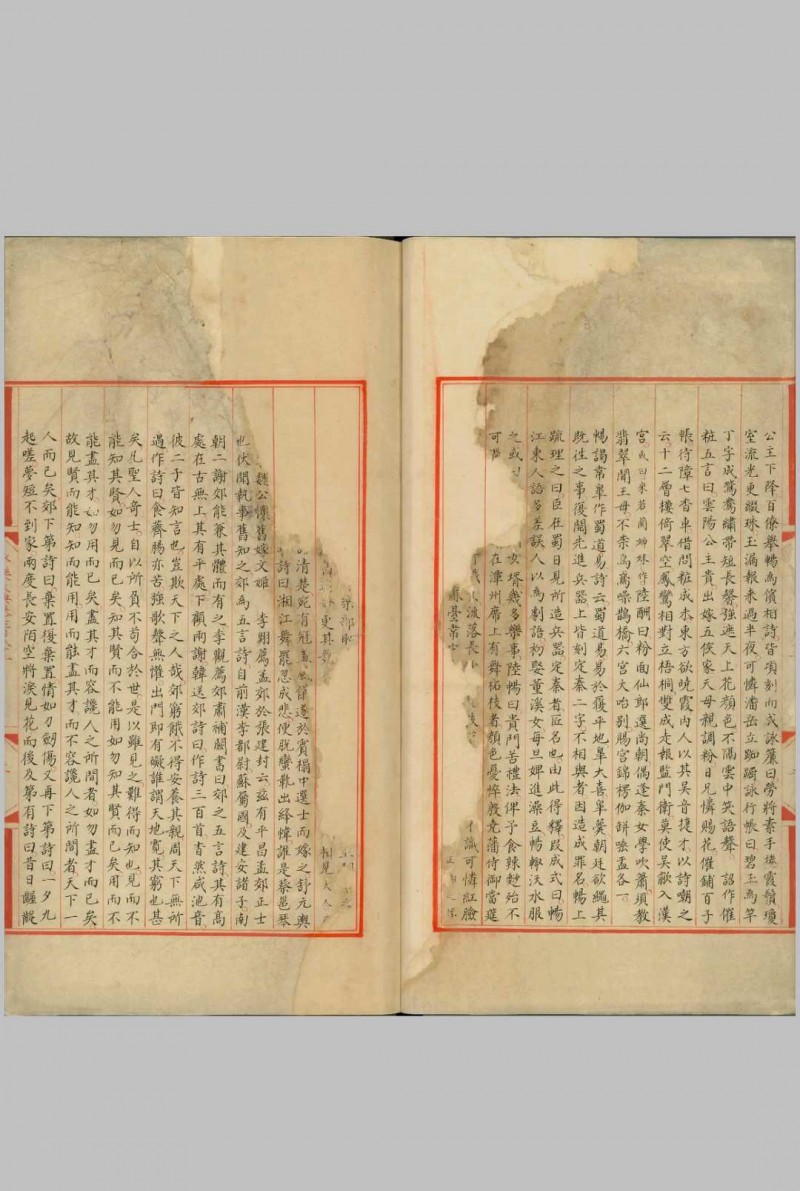 公主下降百僚舉暢為儐相詩皆頃刻而成詠簾曰勞將素手捲霞鬚瓊
室流光更綴珠玉漏報來過半夜可憐潘岳立踟躕詠行帳曰碧玉為竿
丁字成鴛鴦繡帶短長馨強遮天上花顏色不隔雲中笑語聲 詔作催
粧五言曰雲陽公主貴出嫁五侯家天母親調粉日兄憐賜花催鋪百子
帳待障七香車借問粧成未東方欲曉霞內人以其吳音捷才以詩嘲之
云十二層樓倚翠空鳳鸞相對立梧桐雙成走報監門衛莫使吳歈入漢
宮 陸酬曰粉面仙郎選尚朝偶逢秦女學吹簫須教
翡翠聞王母不柰烏鳶噪鵲橋六宮大咍別賜宮錦楞伽缾唾盂各一
暢謁常臯作蜀道易詩云蜀道易易於履平地臯大喜臯薨朝廷欲繩其
既往之事復閱先進兵器上皆刻定秦二字不相與者因造成罪名暢上
疏理之曰臣在蜀日見所造兵器定秦者匠名也由此得釋段成式曰暢
江東人語多差誤人以為劇語初娶董溪女每旦婢進澡豆暢輒沃水服
之或 女壻幾多樂事陸暢曰貴門苦禮法俾予食辣麨殆不
可 在潭州席上有舞柘枝者顏色憂悴殷堯藩侍御當筵
流落長 識可憐紅臉
更其 相見大
清楚宛有冠 遂於賓榻中選士而嫁之舒元輿
詩曰湘江舞罷忽成悲便脫蠻靴出絳幃誰是蔡邕琴
魏公懷舊嫁文姬 李翱薦孟郊於張建封云兹有平昌孟郊正士
也伏聞執事舊知之郊為五言詩自前漢李都尉蘇屬國及建安諸子南
朝二謝郊能兼其體而有之李觀薦郊肅補闕書曰郊之五言詩其有高
處在古無上其有平處下顧兩謝韓送郊詩曰作詩三百首杳然咸池音
彼二子皆知言也豈欺天下之人哉郊窮餓不得安養其親周天下無所
遇作詩曰食薺腸亦苦強歌聲無懽出門即有礙誰謂天地寬其窮也甚
矣凡聖人奇士自以所負不苟合於世是以雖見之難得而知也見而不
能知其賢如勿見而已矣知其賢而不能用如勿知其賢而已矣用而不
能盡其才如勿用而已矣盡其才而容讒人之所間者如勿盡才而已矣
故見賢而能知知而能用用而能盡其才而不容讒人之所間者天下一
人而已矣郊下第詩曰棄置復棄置情如刀劒傷又再下第詩曰一夕九
起嗟夢短不到家兩度長安陌空將淚見花而後及第有詩曰昔日齷齪